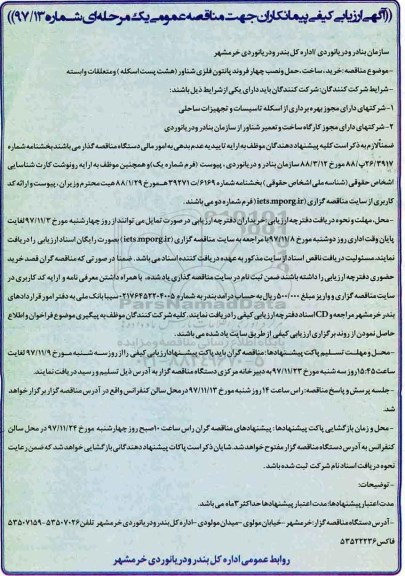 ((آگهی ارزیابی کیفی پیمانکاران جهت مناقصه عمومی یک مرحله‌ای شماره ۹۷/۱۳))
سازمان بنادر و دریانوردی /اداره کل بندر و دریانوردی خرمشهر
-موضوع مناقصه:خرید، ساخت، حمل ونصب چهار فروند پانتون فلزی شناور (هشت پست اسکله ) ومتعلقات وابسته
-شرایط شرکت کنندگان: شرکت کنندگان باید دارای یکی از شرایط ذیل باشند:
۱-شرکتهای دارای مجوز بهره برداری از اسکله تاسیسات و تجهیزات ساحلی
۲-شرکتهای دارای مجوز کارگاه ساخت و تعمیر شناور از سازمان بنادر و دریانوردی
ضمناً لازم به ذکر است کلیه پیشنهاد دهندگان موظف به ارایه تاییدیه عدم بدهی به امور مالی دستگاه مناقصه گذار می باشند بخشنامه شماره
۲۶/۳۹۱۷/پ/۸۸ مورخ ۸۸/۳/۱۲ سازمان بنادر و دریانوردی ، پیوست (فرم شماره یک) و همچنین موظف به ارایه رونوشت کارت شناسایی
اشخاص حقوقی (شناسه ملی اشخاص حقوقی ) بخشنامه شماره ۶۱۶۹/ت ۳۹۲۷۱هـ مورخ ۸۸/۱/۲۹ هیت محترم وزیران ، پیوست و ارائه کد
کاربری از سایت مناقصه گزاری (iets.mporg.ir)(فرم شماره دو می باشند.
-محل، مهلت و نحوه دریافت دفترچه ارزیابی: خریداران دفترچه ارزیابی در صورت تمایل می توانند از روز چهارشنبه مورخ ۹۷/۱۱/۳ لغایت
پایان وقت اداری روز دوشنبه مورخ ۹۷/۱۱/۸ با مراجعه به سایت مناقصه گزاری (iets.mporg.ir) بصورت رایگان اسناد ارزیابی را دریافت
نمایند. مسئولیت دریافت ناقص اسناد از سایت مذکور به عهده دریافت کننده اسناد می باشد. ضمنا در صورتی که مناقصه گران قصد خرید
حضوری دفترچه ارزیابی را داشته باشند ضمن ثبت نام در سایت مناقصه گذاری یاد شده، با همراه داشتن معرفی نامه و ارایه کد کاربری در
سایت مناقصه گزاری و واریز مبلغ ۵۰۰/۰۰۰ ریال به حساب درآمد بندر به شماره سیبا بانک ملی به دفتر امور قراردادهای
بندر خرمشهر مراجعه و CD اسناد دفترچه ارزیابی کیفی را دریافت نمایند. کلیه شرکت کنندگان موظف به پیگیری موضوع فراخوان و اطلاع
حاصل نمودن از روند برگزاری ارزیابی کیفی از طریق سایت یاد شده می باشند.
-محل و مهلت تسلیم پاکت پیشنهادها: مناقصه گران باید پاکت پیشنهاد ارزیابی کیفی را از روز سه شنبه مورخ ۹۷/۱۱/۹ لغایت
ساعت ۱۵:۴۵ روز سه شنبه مورخ ۹۷/۱۱/۲۳ به دبیرخانه مرکزی دستگاه مناقصه گزار به آدرس ذیل تسلیم و رسید دریافت نمایند.
-جلسه پرسش و پاسخ مناقصه: راس ساعت ۱۴ روز شنبه مورخ ۹۷/۱۱/۱۳ در محل سالن کنفرانس واقع در آدرس مناقصه گزار برگزار خواهد
شد.
-محل و زمان بازگشایی پاکت پیشنهادها : پیشنهادهای مناقصه گران راس ساعت ۱۰صبح روز چهارشنبه مورخ ۹۷/۱۱/۲۴ در محل سالن
کنفرانس به آدرس دستگاه مناقصه گزار مفتوح خواهد شد. شایان ذکر است پاکات پیشنهاد دهندگانی بازگشایی خواهد شد که ضمن رعایت
نحوه دریافت اسناد نام شرکت ثبت شده باشد.
-توضیحات:
مدت اعتبار پیشنهادها: مدت اعتبار پیشنهادها حداکثر ۳ماه می باشد.
-آدرس دستگاه مناقصه گزار: خرمشهر -خیابان مولوی -میدان مولودی -اداره کل بندر و دریانوردی خرمشهر تلفن ۵۳۵۰۷۰۲۶-۵۳۵۰۷۱۵۹
فاکس ۵۳۵۲۲۲۳۶
روابط عمومی اداره کل بندر و دریانوردی خرمشهر